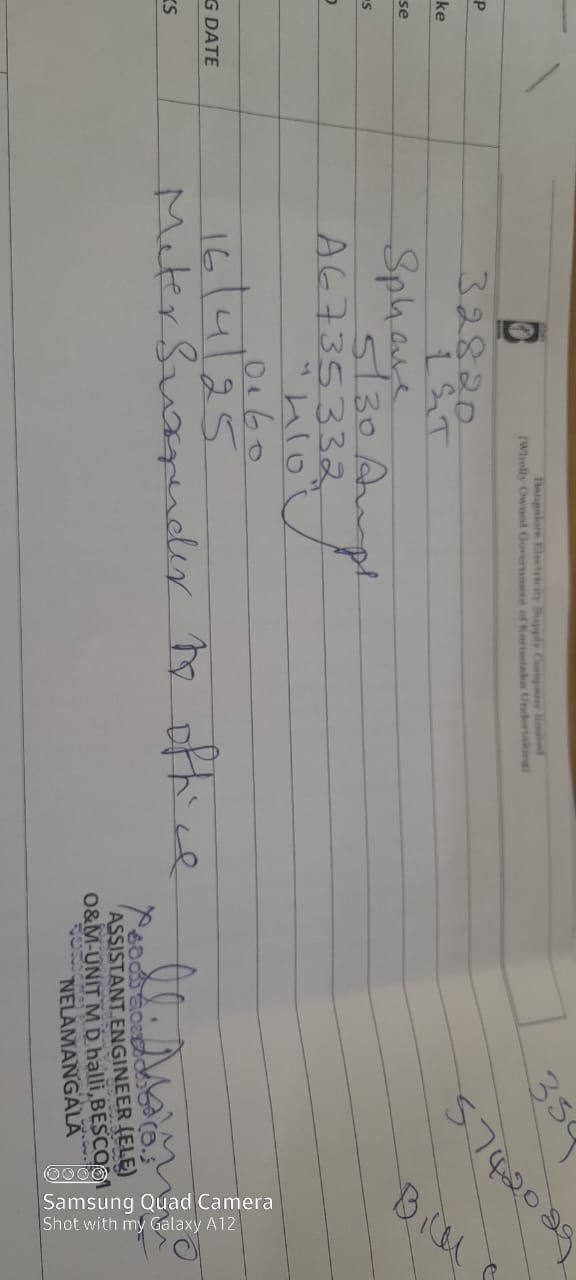 Bangalore Electricity Supply Company limited
(Wholly Owned Government of Karnataka Undertaking)
P
32820
ke
1 St
se
Sphase
s
5/30 Amps
A6735332
"410"
0.60
G DATE
16/4/25
KS
Meter Surrender to office
ASSISTANT ENGINEER (ELE)
O&M-UNIT M D halli, BESCOM
NELAMANGALA
Samsung Quad Camera
Shot with my Galaxy A12